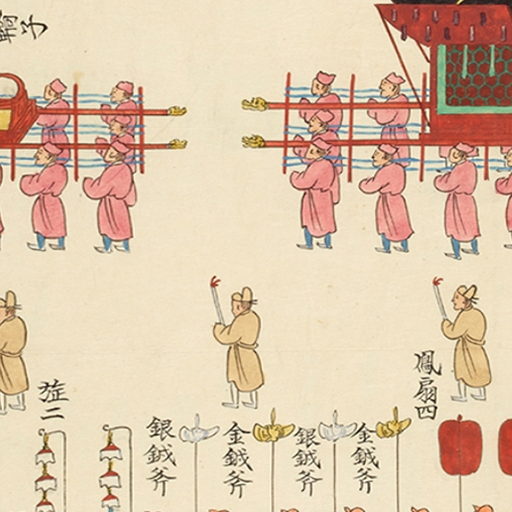 子
鳳扇四
金鉞斧
銀鉞斧
金鉞斧
銀鉞斧
旌二